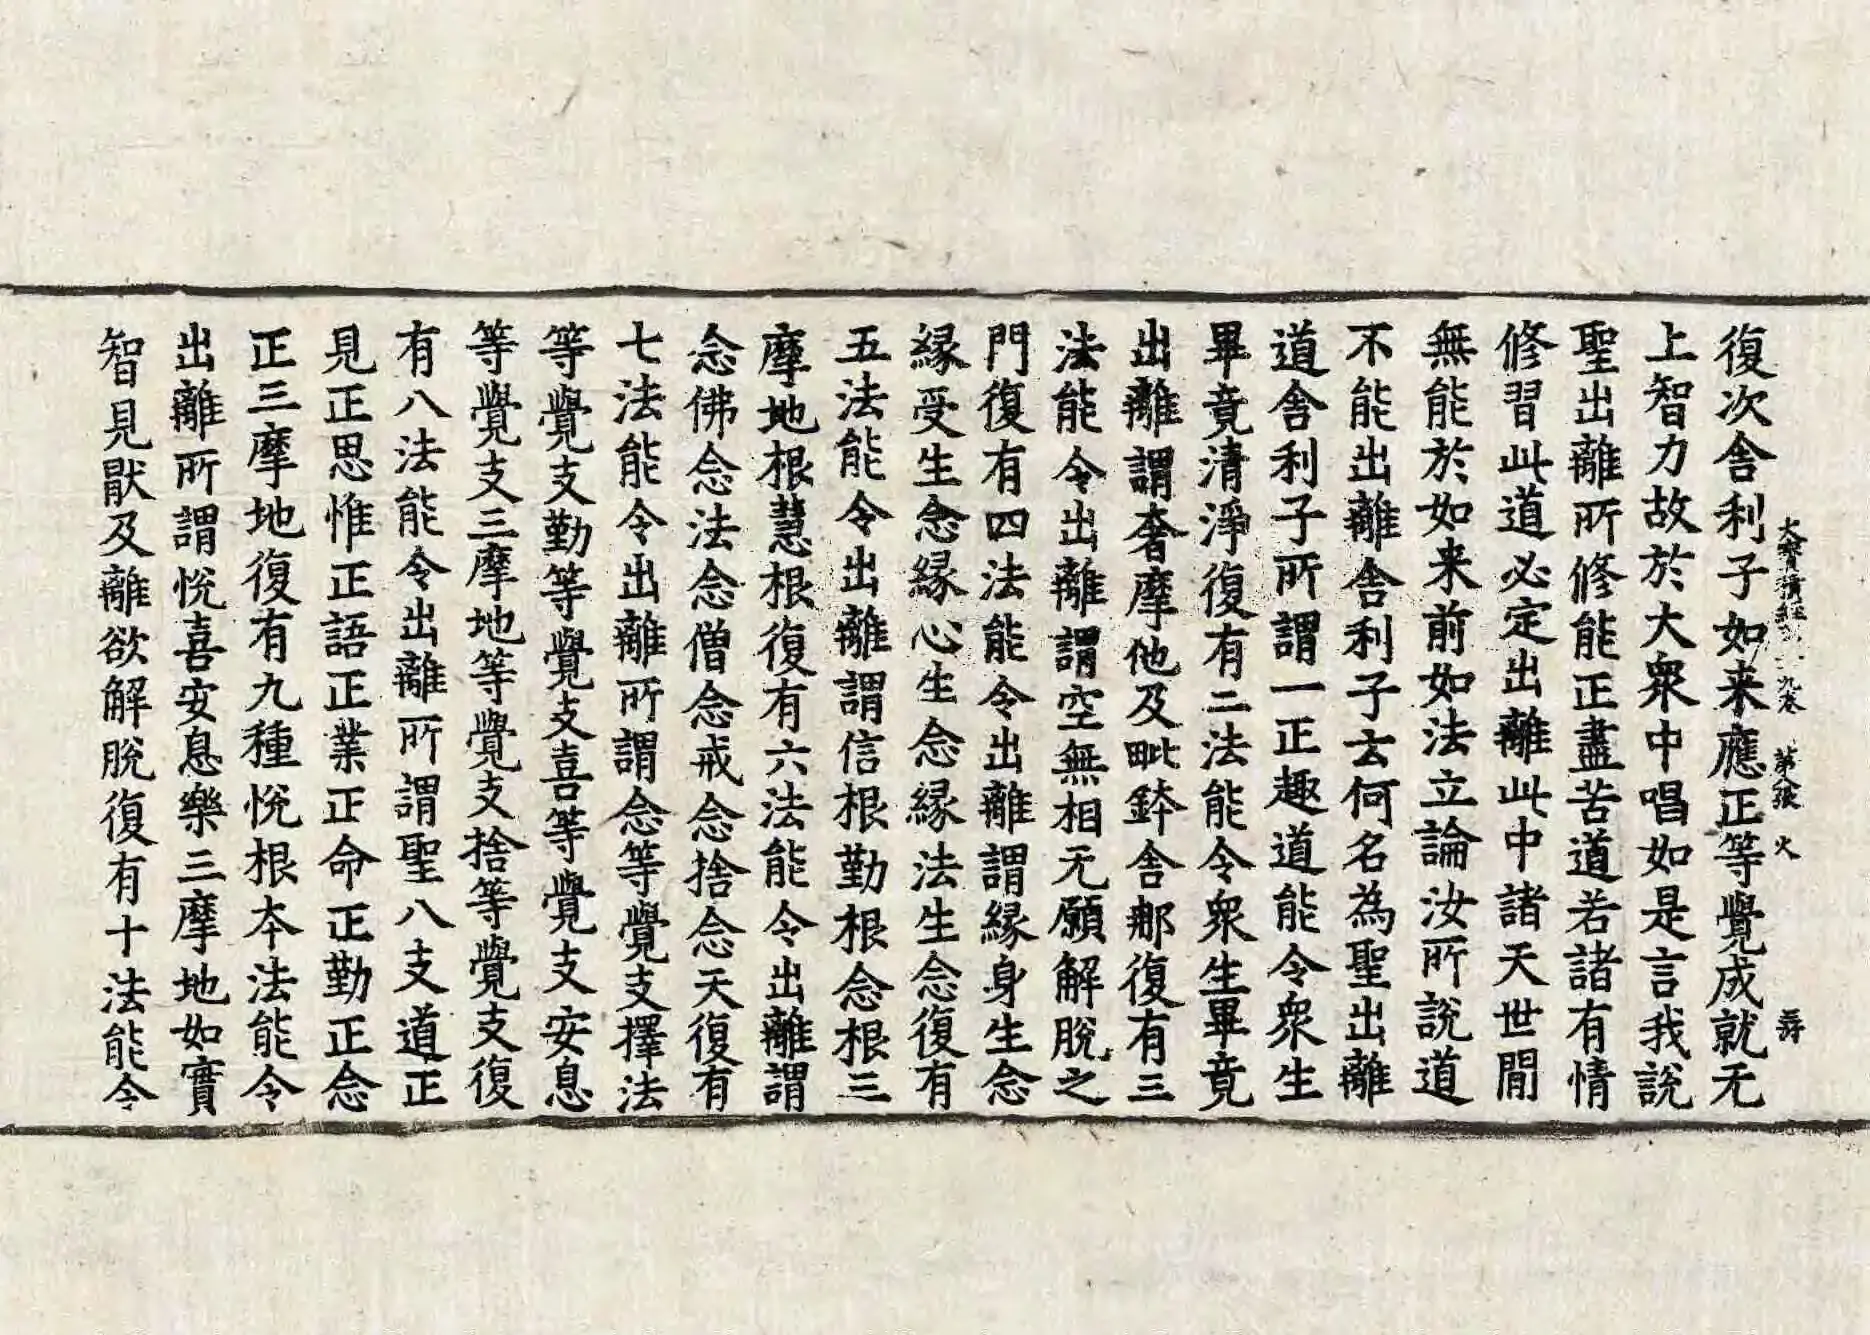 大寶積經 九卷 第 張 火
復次舍利子如来應正等覺成就无
上智力故於大衆中唱如是言我說
聖出離所修能正盡苦道若諸有情
修習此道必定出離此中諸天世間
無能於如来前如法立論汝所說道
不能出離舍利子云何名為聖出離
道舍利子所謂一正趣道能令衆生
畢竟清淨復有二法能令衆生畢竟
出離謂奢摩他及毗鉢舍那復有三
法能令出離謂空無相无願解脫之
門復有四法能令出離謂緣身生念
緣受生念緣心生念緣法生念復有
五法能令出離謂信根勤根念根三
摩地根慧根復有六法能令出離謂
念佛念法念僧念戒念捨念天復有
七法能令出離所謂念等覺支擇法
等覺支勤等覺支喜等覺支安息
等覺支三摩地等覺支捨等覺支復
有八法能令出離所謂聖八支道正
見正思惟正語正業正命正勤正念
正三摩地復有九種悅根本法能令
出離所謂悅喜安息樂三摩地如實
智見猒及離欲解脫復有十法能令